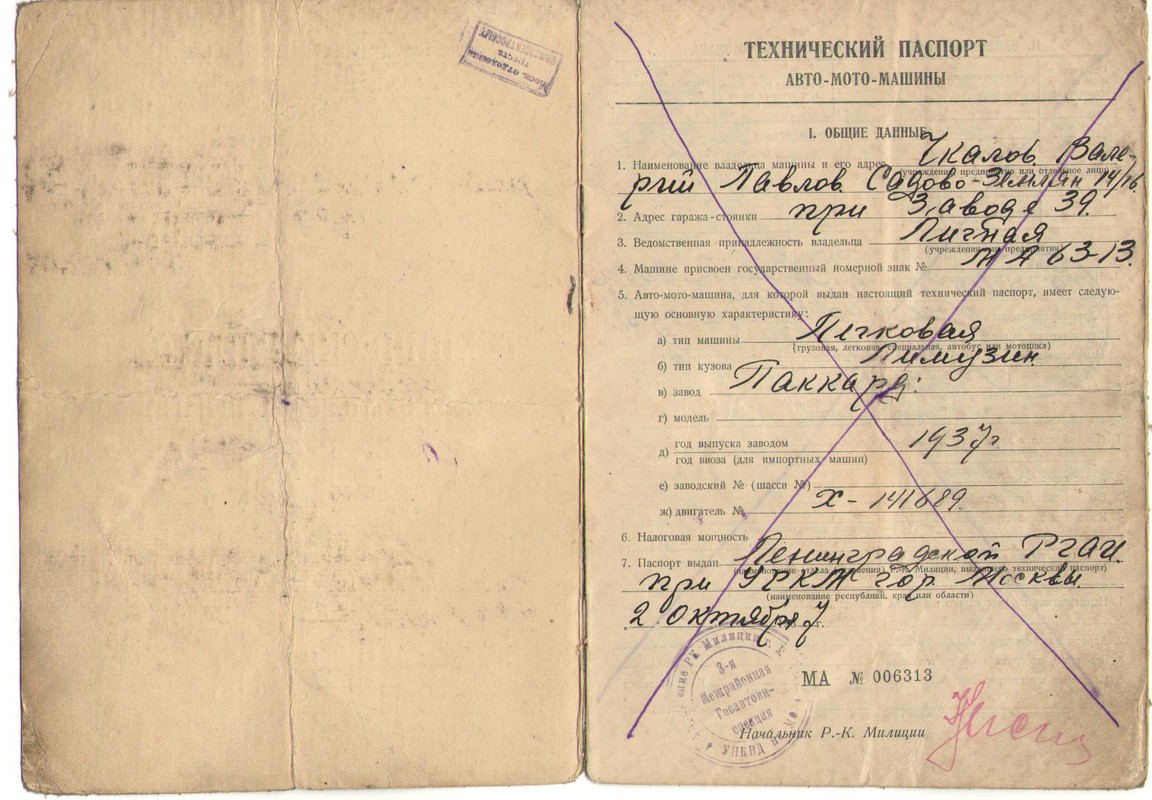 Моск. отделение
треста
ТЕХНИЧЕСКИЙ ПАСПОРТ
АВТО-МОТО-МАШИНЫ
I. ОБЩИЕ ДАННЫЕ
1. Наименование владельца машины и его адрес Чкалов Вале-
(учреждение, предприятие или отдельное лицо)
рий Павлов. Садово-Землян 14/16
2. Адрес гаража-стоянки при Заводе 39.
3. Ведомственная принадлежность владельца Личная
(учреждения или предприятия)
4. Машине присвоен государственный номерной знак № МА 63-13.
5. Авто-мото-машина, для которой выдан настоящий технический паспорт, имеет следую-
щую основную характеристику:
а) тип машины Легковая
(грузовая, легковая, специальная, автобус или мотоцикл)
б) тип кузова Лимузин
в) завод Паккард:
г) модель
д) год выпуска заводом 1937г
год ввоза (для импортных машин)
е) заводский № (шасси №)
ж) двигатель № X-141689.
6. Налоговая мощность
7. Паспорт выдан Ленинградской РГАИ
(наименование отдела (отделения) Р.-К. Милиции, выдавшего технический паспорт)
при УРКМ гор. Москвы.
(наименование республики, края или области)
2 Октября 7 г.
МА № 006313
Милиции г.
3-я
Межрайонная
Госавтоин-
спекция
УНКВД по МО
Начальник Р.-К. Милиции